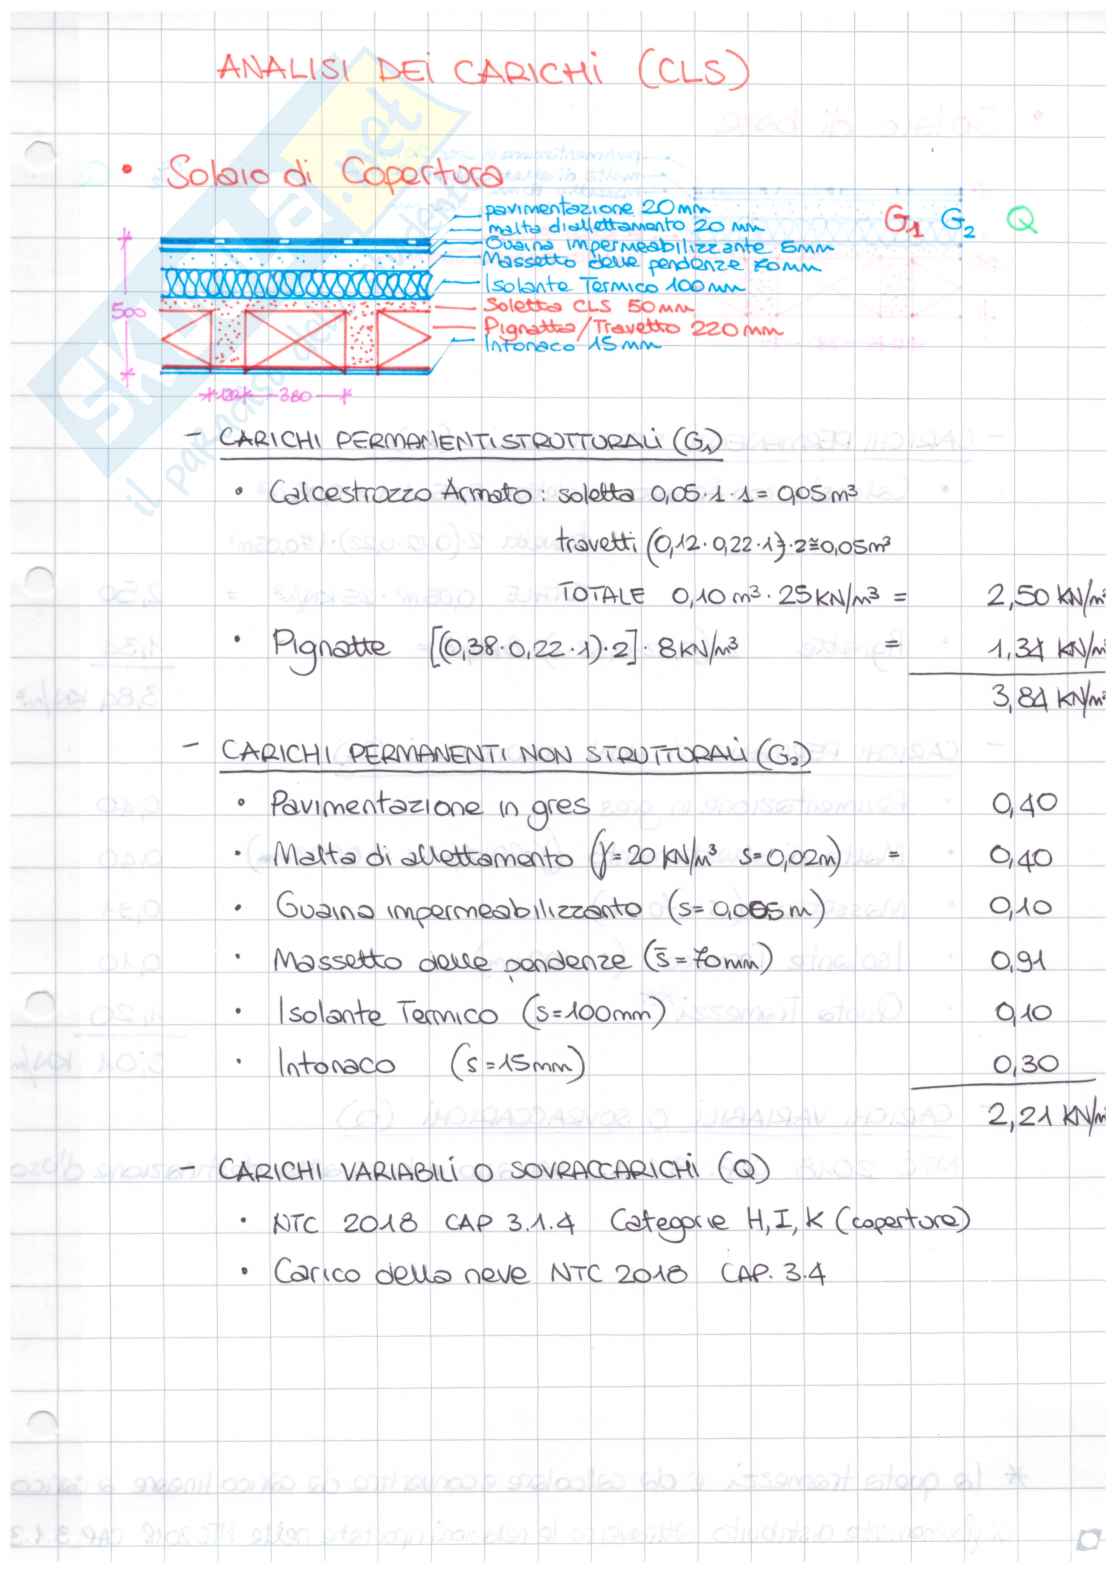 ANALISI DEI CARICHI (CLS)
• Solaio di Copertura
pavimentazione 20 mm
malta di allettamento 20 mm
Guaina impermeabilizzante 5mm
Massetto delle pendenze 70mm
Isolante Termico 100 mm
Soletta CLS 50 mm
Pignatta/Travetto 220 mm
Intonaco 15 mm
G1 G2 Q
500
120 380
- CARICHI PERMANENTI STRUTTURALI (G1)
• Calcestrozzo Armato : soletta 0,05·1·1 = 0,05 m³
travetti (0,12·0,22·1)·2≅0,05m³
TOTALE 0,10 m³ · 25 KN/m³ = 2,50 KN/m²
• Pignatte [(0,38·0,22·1)·2]·8 KN/m³ = 1,34 KN/m²
3,84 KN/m²
- CARICHI PERMANENTI NON STRUTTURALI (G2)
• Pavimentazione in gres 0,40
• Malta di allettamento (γ=20 KN/m³ s=0,02m) = 0,40
• Guaina impermeabilizzante (s=0,005 m) 0,10
• Massetto delle pendenze (s̄=70mm) 0,91
• Isolante Termico (s=100mm) 0,10
• Intonaco (s=15mm) 0,30
2,21 KN/m
- CARICHI VARIABILI O SOVRACCARICHI (Q)
• NTC 2018 CAP 3.1.4 Categorie H, I, K (coperture)
• Carico della neve NTC 2018 CAP. 3.4